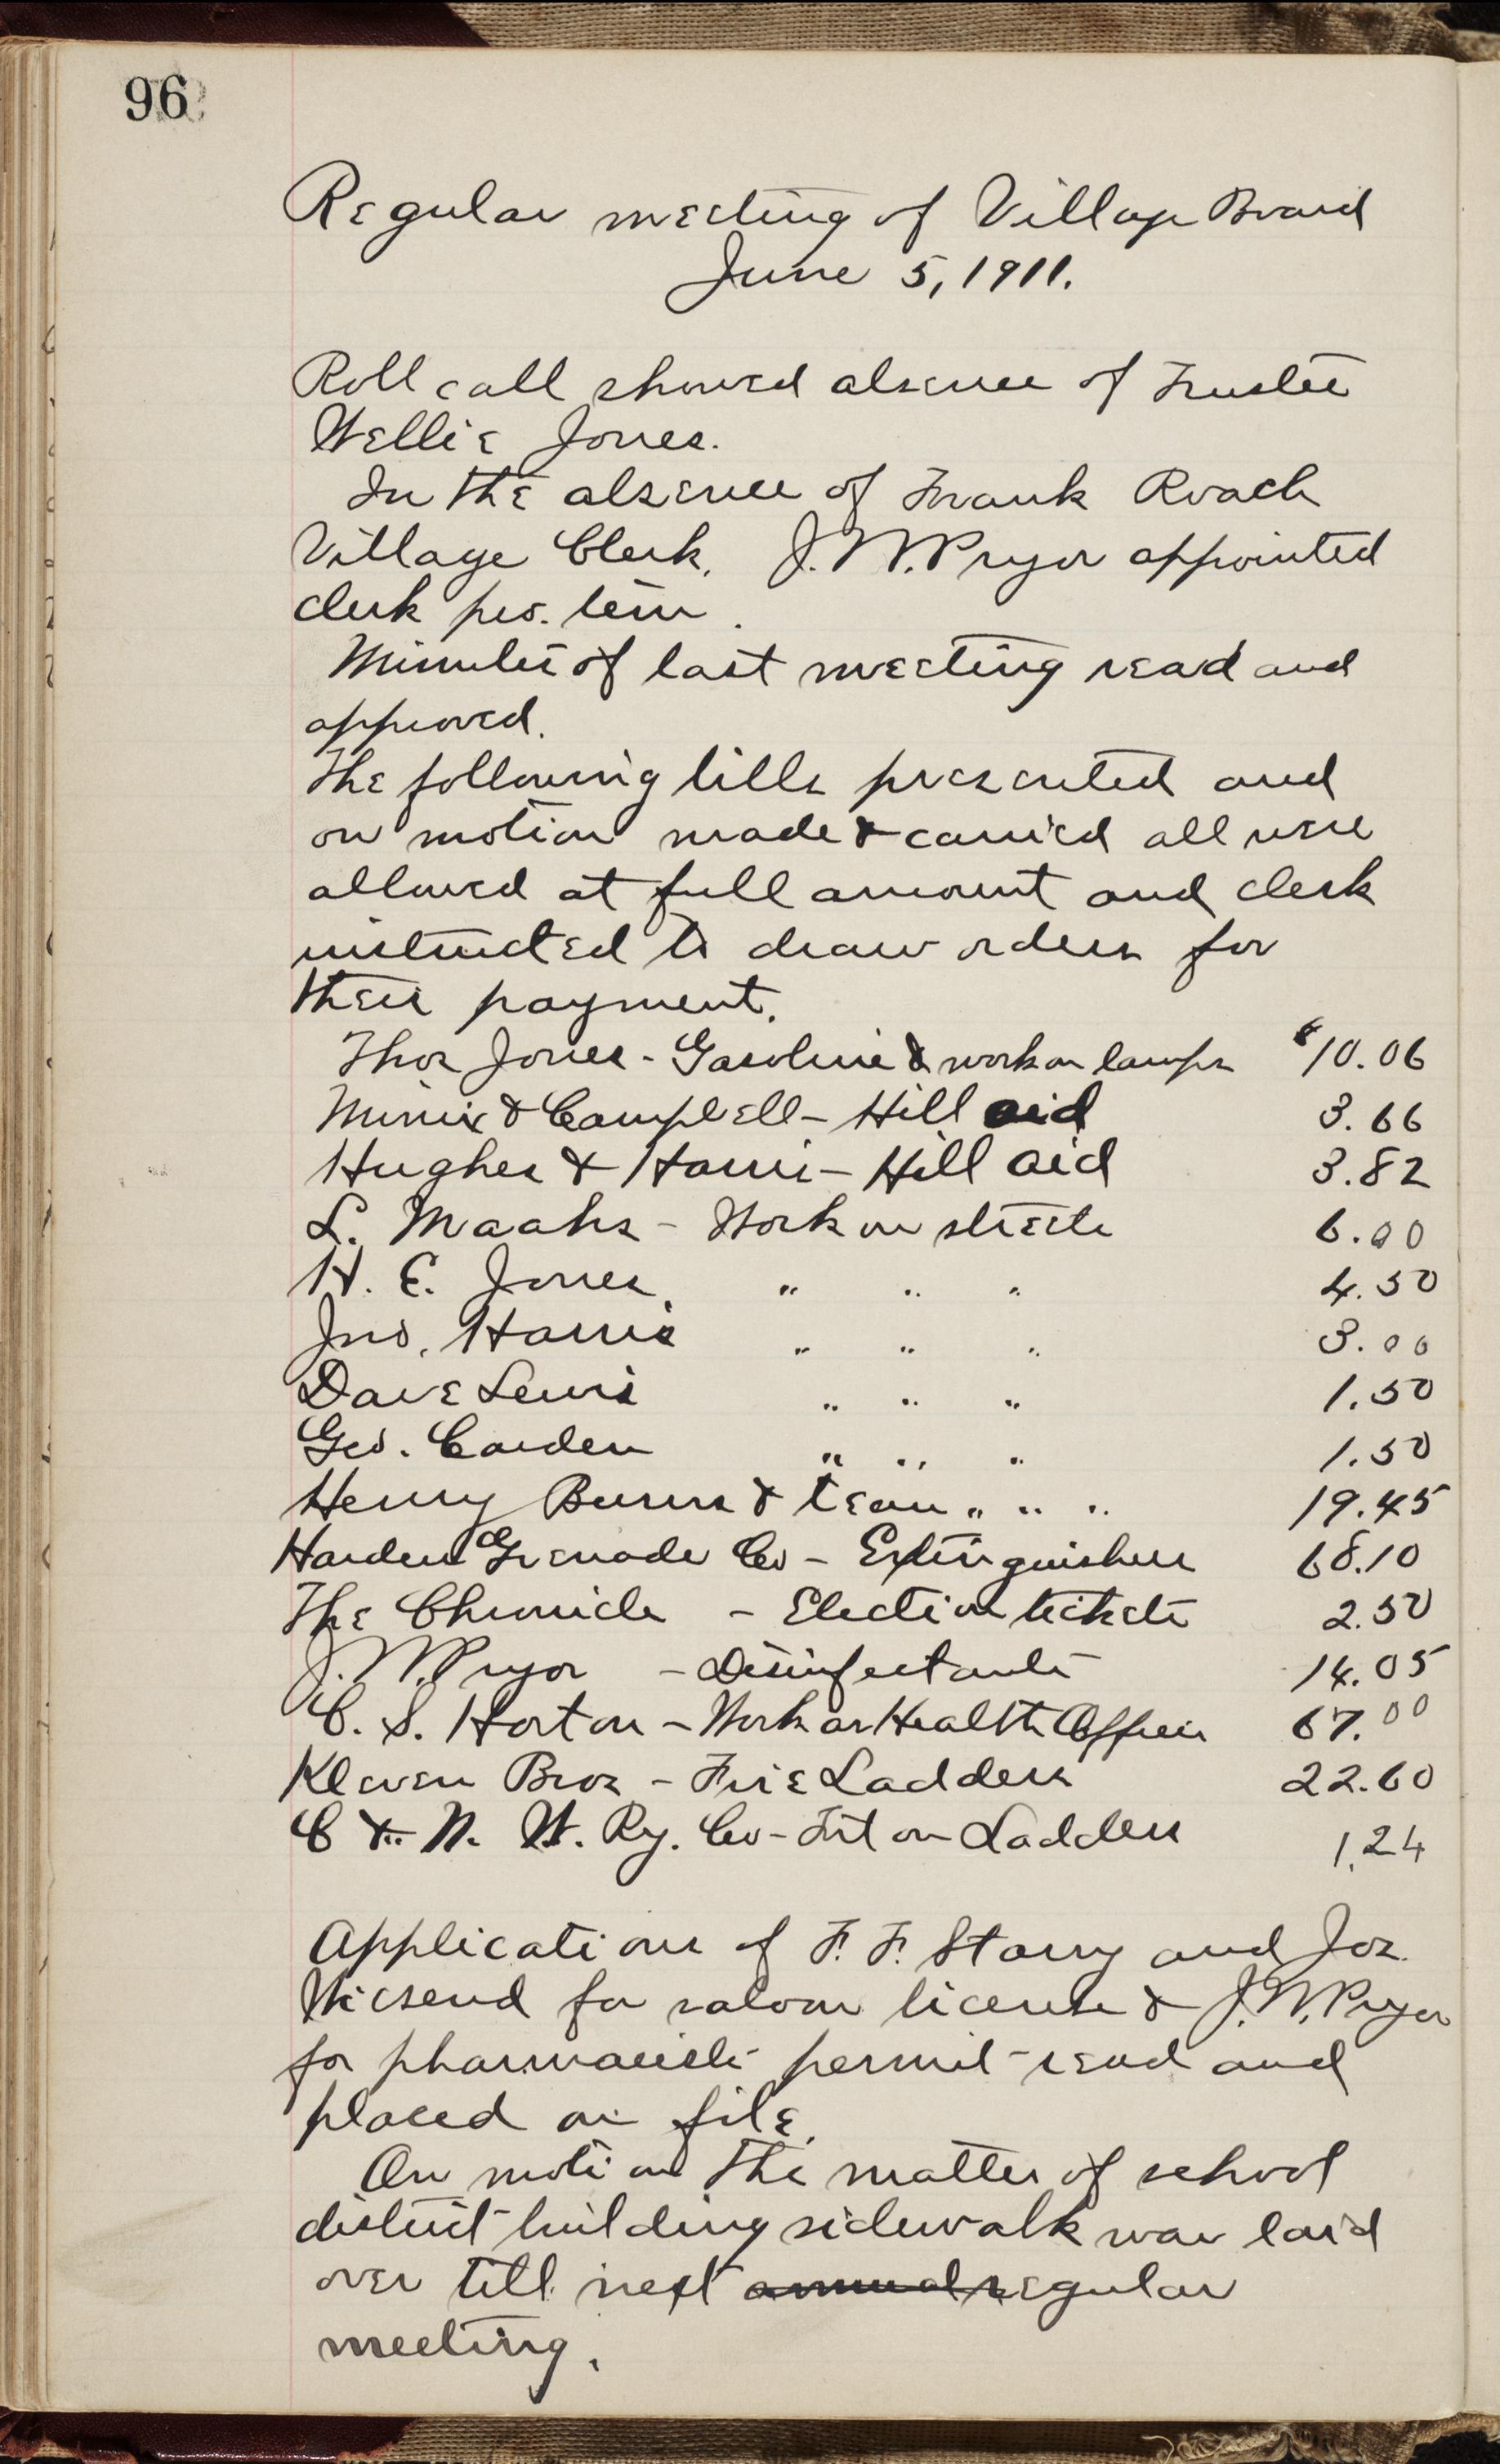 96
Regular meeting of Village Board
June 5, 1911.
Roll call showed absence of Trustee
Wellie Jones.
In the absence of Frank Roach
Village Clerk. J. W. Pryor appointed
clerk pro. tem.
Minutes of last meeting read and
approved.
The following bills presented and
on motion made & carried all were
allowed at full amount and clerk
instructed to draw orders for
their payment.
Thos Jones - Gasoline & work on lamps $10.06
Minix & Campbell - Hill aid 3.66
Hughes & Harris - Hill aid 3.82
L. Maahs - Work on streets 6.00
H. E. Jones " " " 4.50
Jno. Harris " " " 3.00
Dave Lewis " " " 1.50
Geo. Carden " " " 1.50
Henry Burns & team " " " 19.45
Harden Grenade Co - Extinguishers 68.10
The Chronicle - Election tickets 2.50
J. W. Pryor - Disinfectants 14.05
C. S. Horton - Work as Health Officer 67.00
Kleven Bros - Fire Ladders 22.60
C & N. W. Ry. Co - Frt on Ladders 1.24
Applications of F. F. Starry and Jos.
for saloon license & J. W. Pryor
for pharmacists permit read and
placed on file.
On motion the matter of school
district building sidewalk was laid
over till next annual regular
meeting.